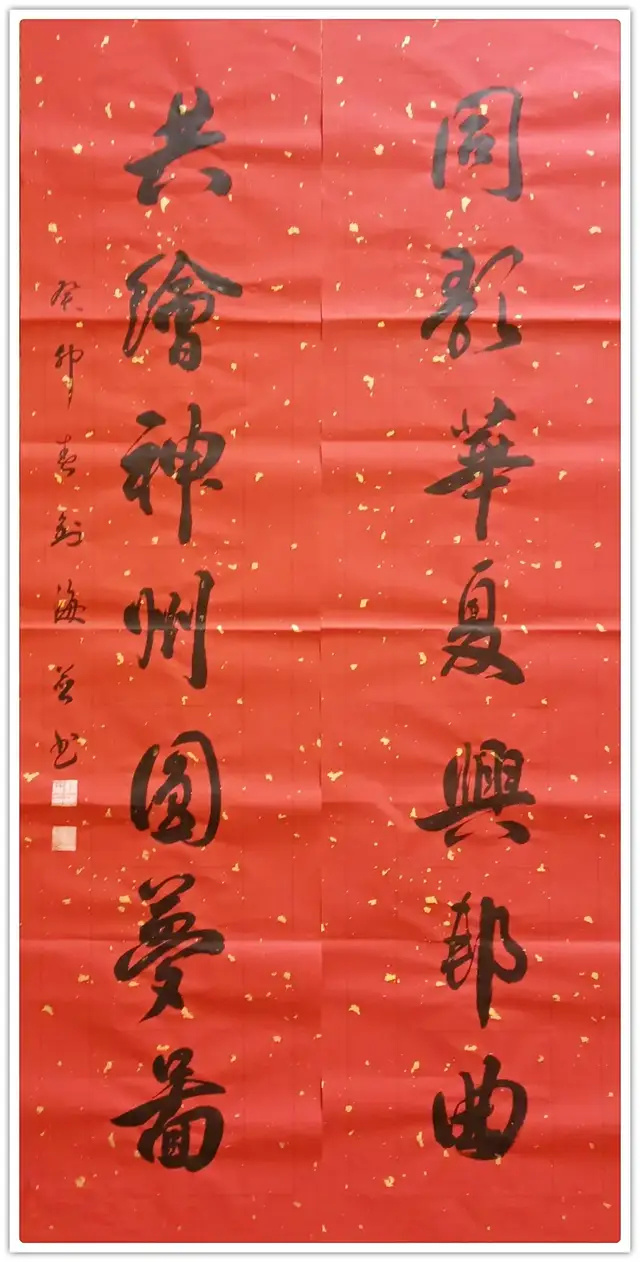 同歌華夏興邦曲
共繪神州圓夢圖
癸卯春劍海並书